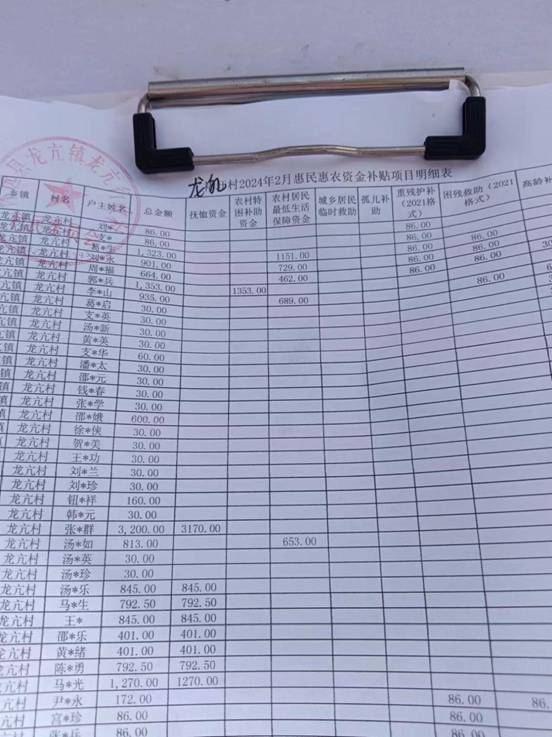 县龙亢镇龙亢
龙亢 村2024年2月惠民惠农资金补贴项目明细表
乡镇 村名 户主姓名 总金额 抚恤资金 农村特困补助资金 农村居民最低生活保障资金 城乡居民临时救助 孤儿补助 重残护补(2021格式) 困残救助(2021格式) 高龄补
龙亢镇 龙亢村 刘* 86.00 86.00
龙亢镇 龙亢村 86.00 86.00 86.00
龙亢镇 龙亢村 1,323.00 1151.00 86.00 86.00
龙亢镇 龙亢村 刘*永 901.00 729.00 86.00 86.00
龙亢镇 龙亢村 周*福 664.00 462.00
龙亢镇 龙亢村 郭*兵 1,353.00 1353.00
龙亢镇 龙亢村 李*山 935.00 689.00 86.00
镇 龙亢村 葛*启 30.00
镇 龙亢村 支*英 30.00
镇 龙亢村 汤*新 30.00
镇 龙亢村 黄*英 30.00
镇 龙亢村 支*华 60.00
镇 龙亢村 潘*太 30.00
镇 龙亢村 邵*元 30.00
镇 龙亢村 钱*春 30.00
镇 龙亢村 张*学 30.00
龙亢村 邵*娥 600.00
龙亢村 徐*侠 30.00
龙亢村 贺*美 30.00
龙亢村 王*功 30.00
龙亢村 刘*兰 30.00
龙亢村 刘*珍 30.00
龙亢村 钮*祥 160.00
龙亢村 韩*元 30.00
龙亢村 张*群 3,200.00 3170.00
龙亢村 汤*如 813.00 653.00
龙亢村 汤*英 30.00
龙亢村 汤*珍 30.00
龙亢村 汤*乐 845.00 845.00
龙亢村 马*生 792.50 792.50
龙亢村 王* 845.00 845.00
龙亢村 邵*乐 401.00 401.00
龙亢村 黄*绪 401.00 401.00
龙亢村 陈*勇 792.50 792.50
龙亢村 马*光 1,270.00 1270.00
龙亢村 尹*永 172.00 86.00 86.
龙亢村 宫*珍 86.00 86.00
龙亢村 张*兵 86.00 86.00